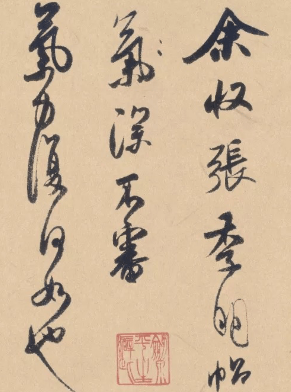 余收張季明帖
氣深不審
氣力復何如也